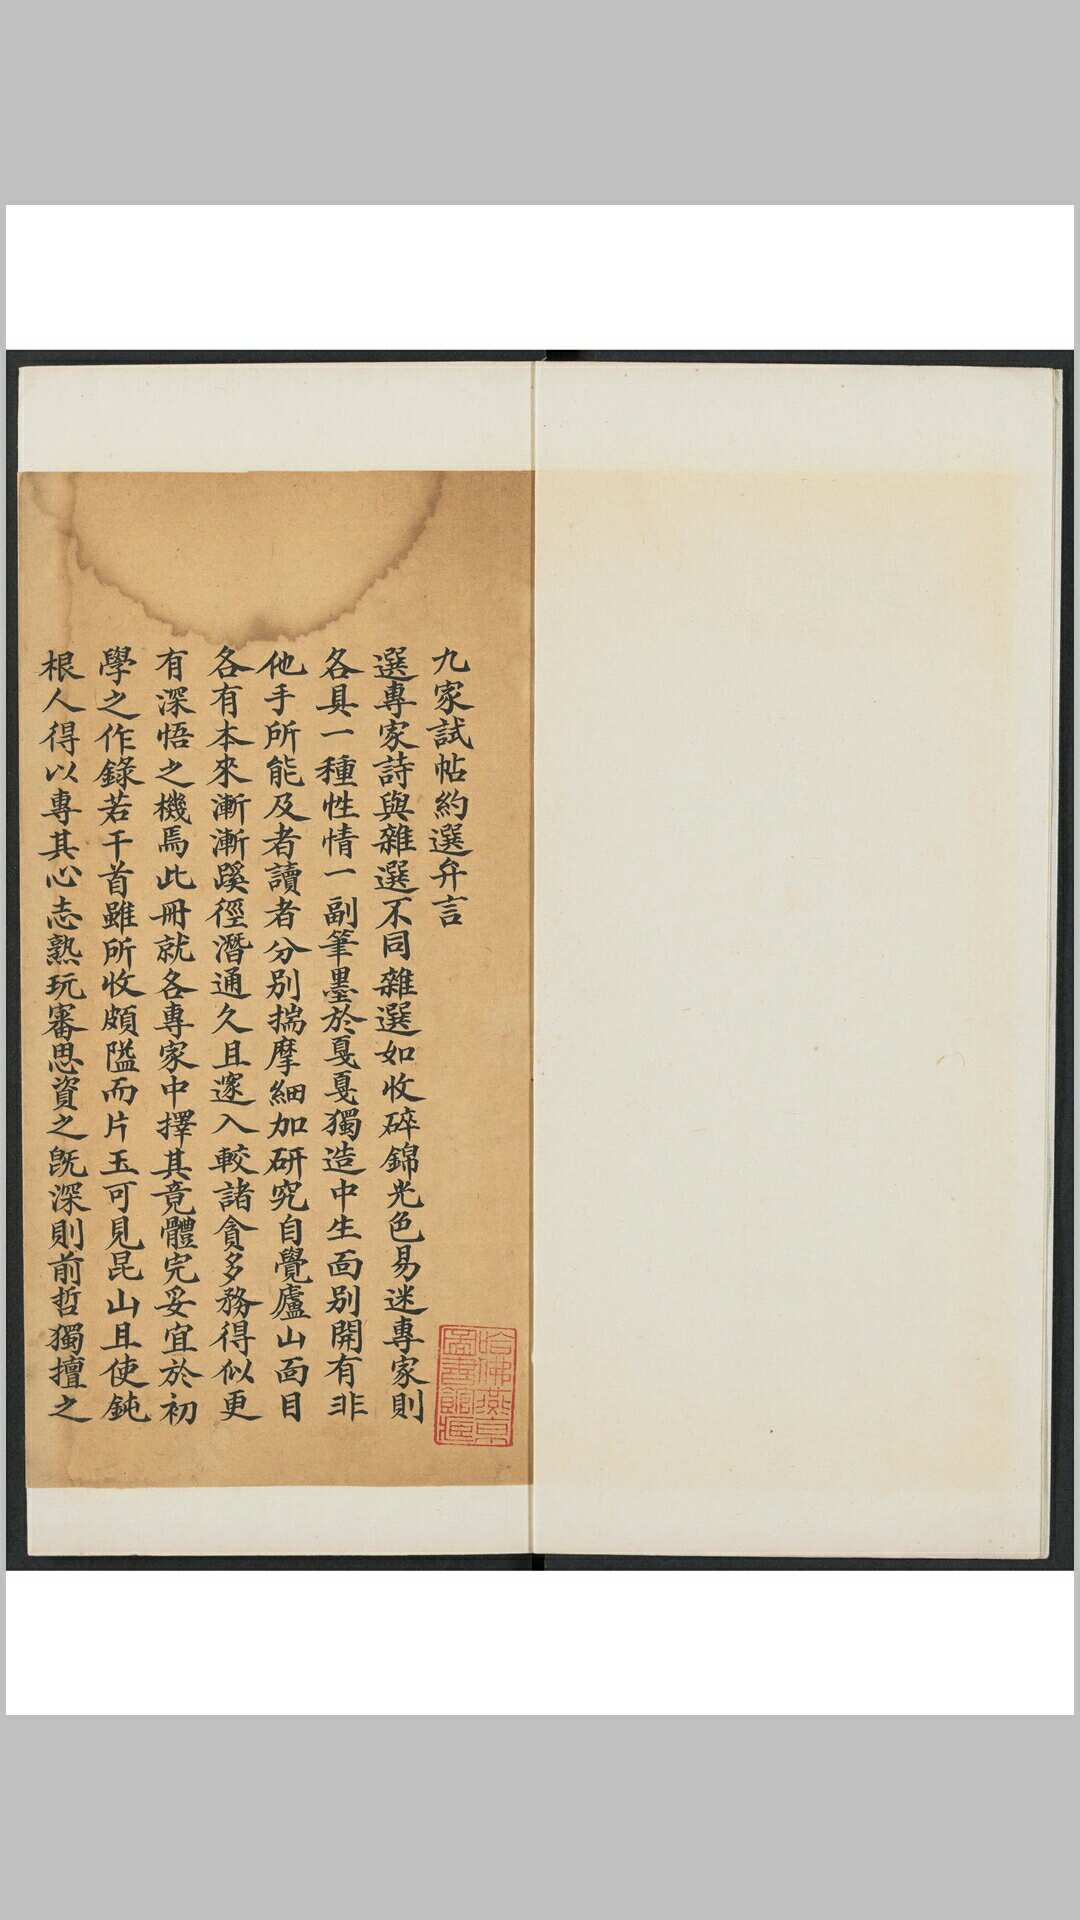 九家試帖約選弁言
選專家詩與雜選不同雜選如收碎錦光色易迷專家則
各具一種性情一副筆墨於戞戞獨造中生面別開有非
他手所能及者讀者分別揣摩細加研究自覺廬山面目
各有本來漸漸蹊徑潛通久且邃入較諸貪多務得似更
有深悟之機焉此冊就各專家中擇其竟體完妥宜於初
學之作錄若干首雖所收頗隘而片玉可見昆山且使鈍
根人得以專其心志熟玩審思資之旣深則前哲獨擅之
哈佛燕京
圖書館藏